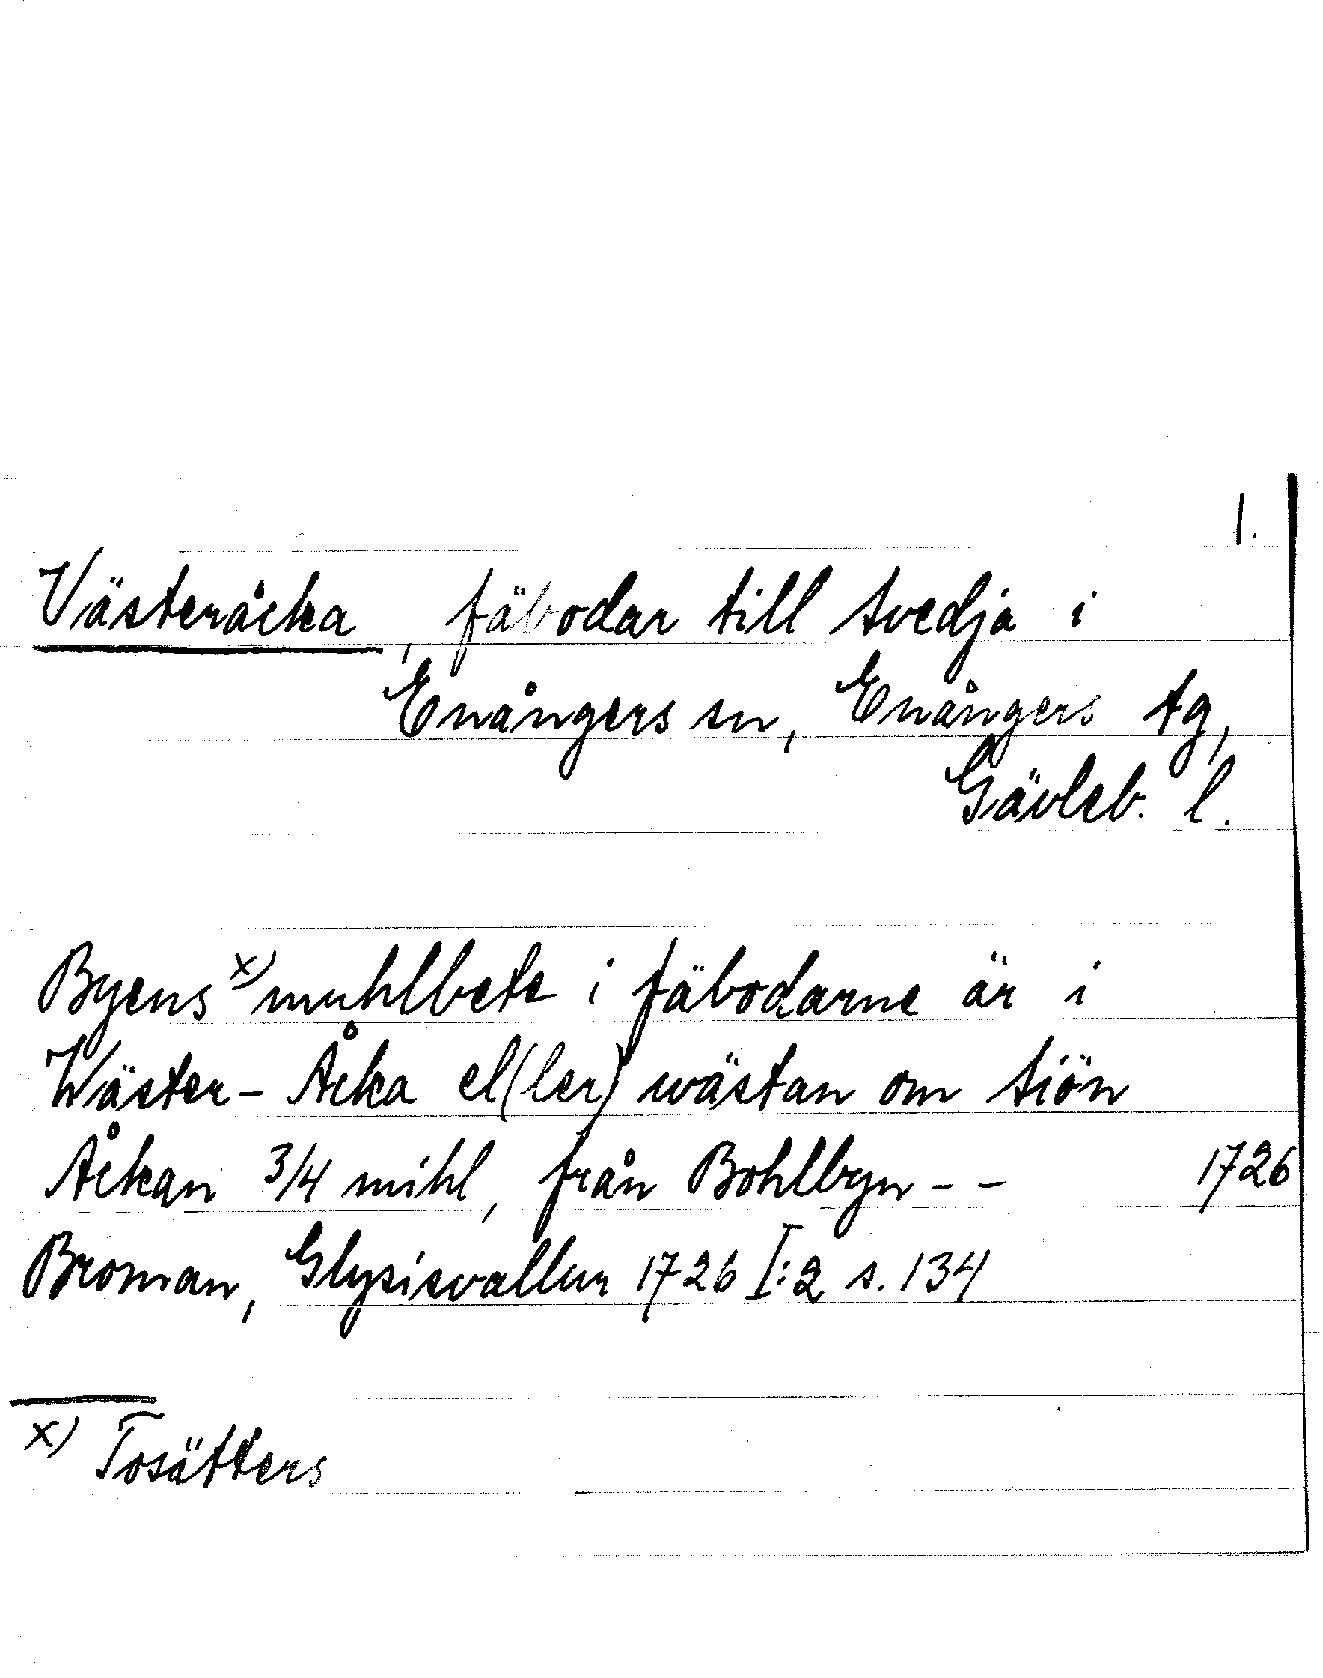 1.
Västeråcka, fäbodar till Svedja i
Enångers sn, Enångers tg,
Gävleb. l.
Byens x) muhlbete i fäbodarne är i
Wäster-Åcka el(ler) wästan om siön
Åckan 3/4 mihl, från Bohlbyn - - 1726
Broman, Glysisvallur 1726 I:2 s. 134
x) Tosätters